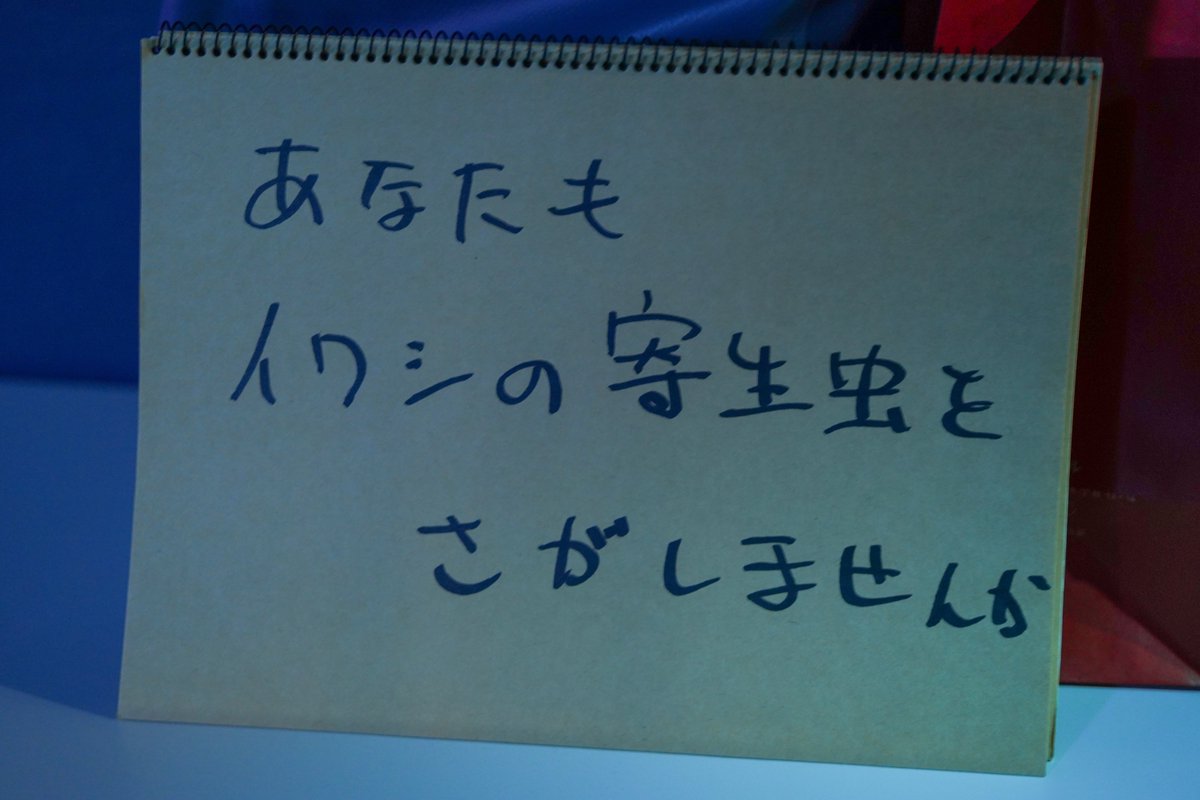 あなたも
イワシの寄生虫を
さがしませんか